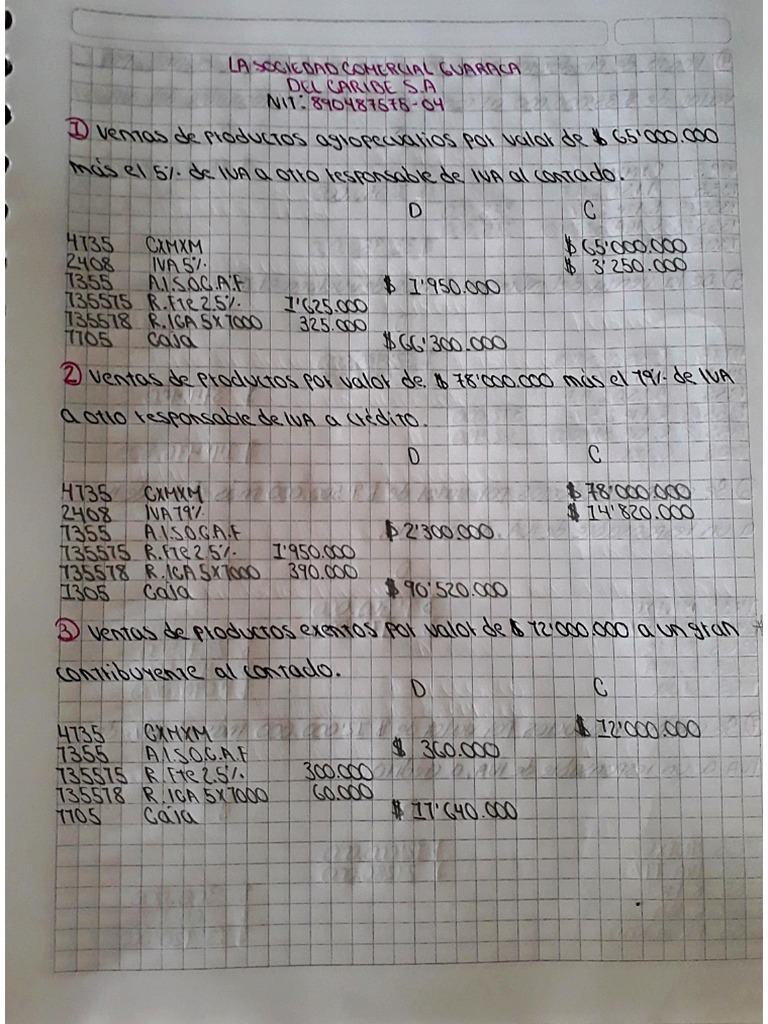 LA SOCIEDAD COMERCIAL GUARACA
DEL CARIBE S.A
NIT: 890487575-04
1 Ventas de productos agropecuarios por valor de $ 65'000.000
más el 5% de IVA a otro responsable de IVA al contado.
D C
4135 CXMXM $ 65'000.000
2408 IVA 5% $ 3'250.000
1355 A.I.S.O.C.A.F $ 1'950.000
135515 R.Fte 2.5% 1'625.000
135518 R.ICA 5X1000 325.000
1105 Caja $ 66'300.000
2 Ventas de productos por valor de $ 78'000.000 más el 19% de IVA
a otro responsable de IVA a crédito.
D C
4135 CXMXM $ 78'000.000
2408 IVA 19% $ 14'820.000
1355 A.I.S.O.C.A.F $ 2'300.000
135515 R.Fte 2.5% 1'950.000
135518 R.ICA 5X1000 390.000
1305 Caja $ 90'520.000
3 Ventas de productos exentos por valor de $ 12'000.000 a un gran
contribuyente al contado.
D C
4135 CXMXM $ 12'000.000
1355 A.I.S.O.C.A.F $ 360.000
135515 R.Fte 2.5% 300.000
135518 R.ICA 5X1000 60.000
1105 Caja $ 11'640.000